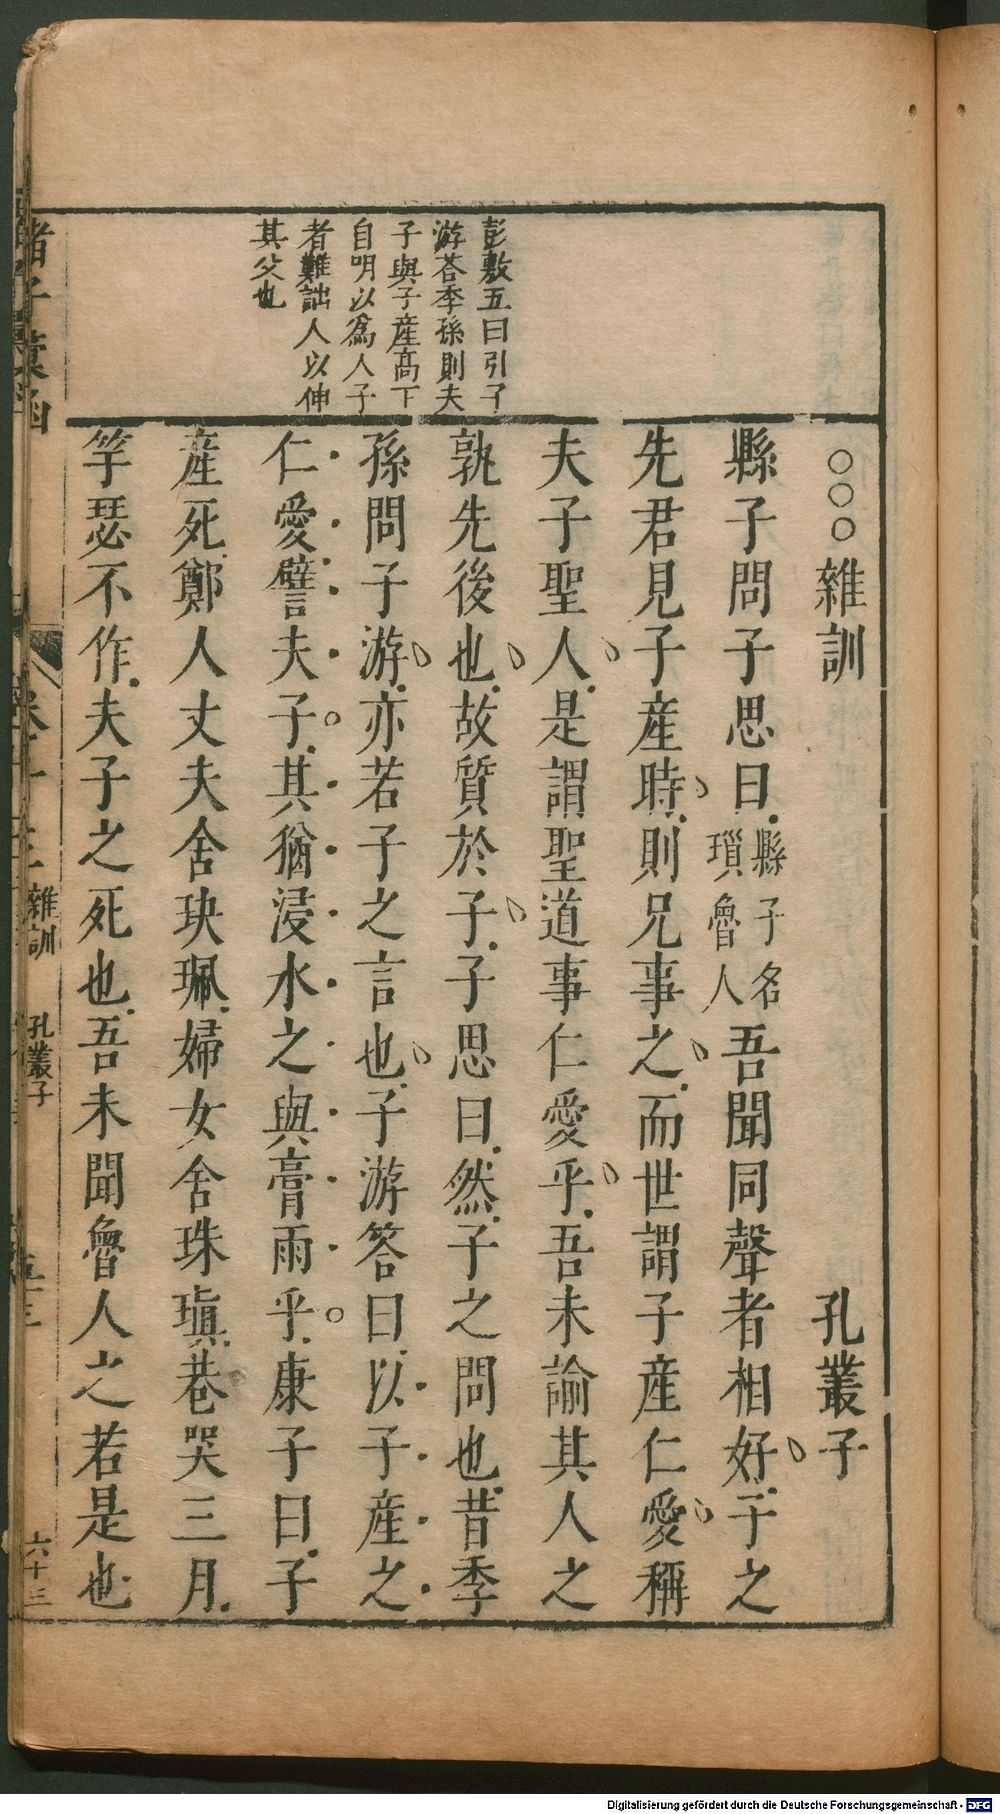 彭敷五曰引子
游荅季孫則夫
子與子產高下
自明以爲人子
者難詘人以伸
其父也
○○○雜訓 孔叢子
縣子問子思曰縣子名瑣魯人吾聞同聲者相好子之
先君見子產時則兄事之而世謂子產仁愛稱
夫子聖人是謂聖道事仁愛乎吾未諭其人之
孰先後也故質於子子思曰然子之問也昔季
孫問子游亦若子之言也子游答曰以子產之
仁愛譬夫子其猶浸水之與膏雨乎康子曰子
產死鄭人丈夫舍玦珮婦女舍珠瑱巷哭三月
竽瑟不作夫子之死也吾未聞魯人之若是也
雜訓 孔叢子 六十三
Digitalisierung gefördert durch die Deutsche Forschungsgemeinschaft - DFG